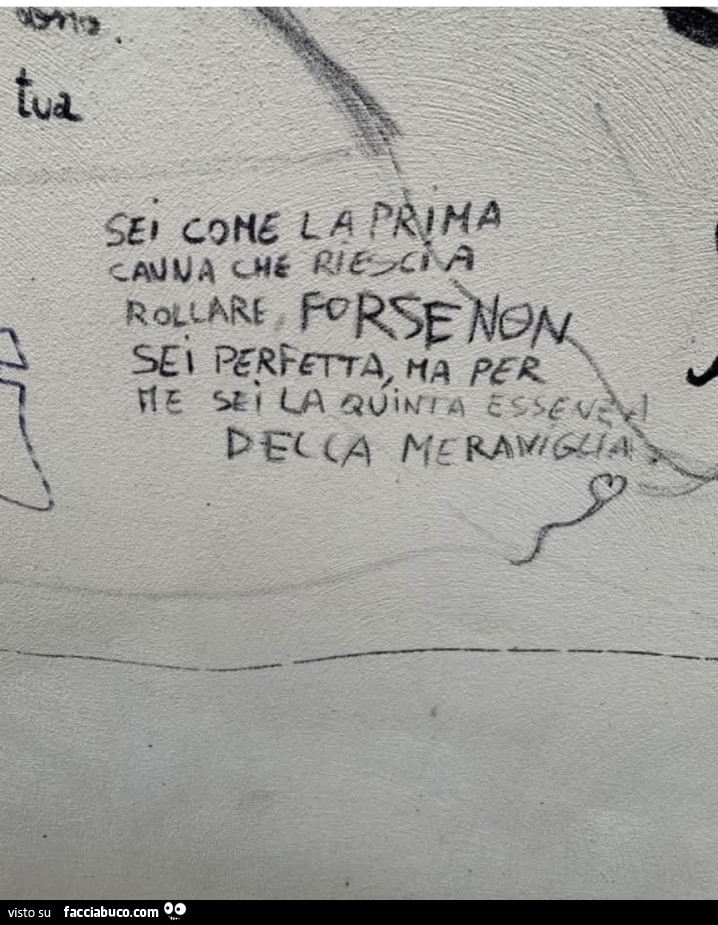 tua
SEI COME LA PRIMA
CANNA CHE RIESCI A
ROLLARE, FORSE NON
SEI PERFETTA, MA PER
ME SEI LA QUINTA ESSENZA
DELLA MERAVIGLIA.
visto su facciabuco.com